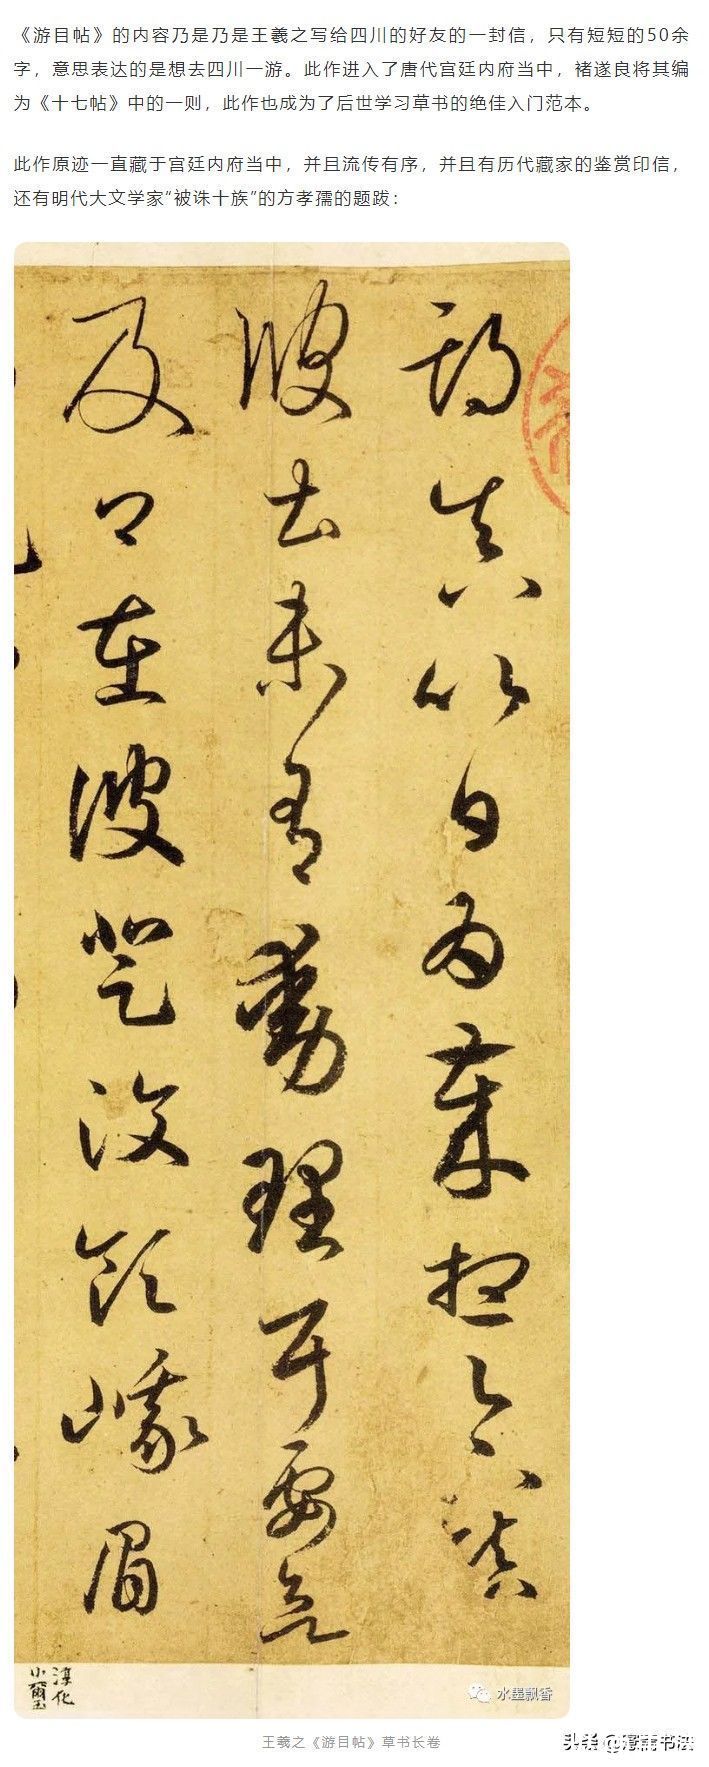 《游目帖》的内容乃是乃是王羲之写给四川的好友的一封信，只有短短的50余
字，意思表达的是想去四川一游。此作进入了唐代宫廷内府当中，褚遂良将其编
为《十七帖》中的一则，此作也成为了后世学习草书的绝佳入门范本。
此作原迹一直藏于宫廷内府当中，并且流传有序，并且有历代藏家的鉴赏印信，
还有明代大文学家“被诛十族”的方孝孺的题跋：
期真以日為歲想足下鎮
彼土未有動理耳要欲
及卿在彼登汶領峨眉
淳化
小璽
水墨飘香
王羲之《游目帖》草书长卷
头条 @书法